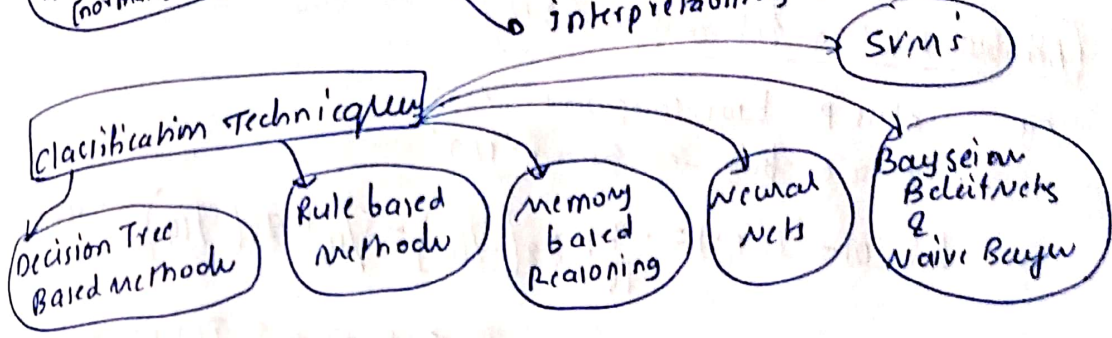 interpretability
SVMs
Classification Techniques
Decision Tree
Based Methods
Rule based
Methods
Memory
based
Reasoning
Neural
Nets
Baysein
Belief Nets
&
Naive Bayes